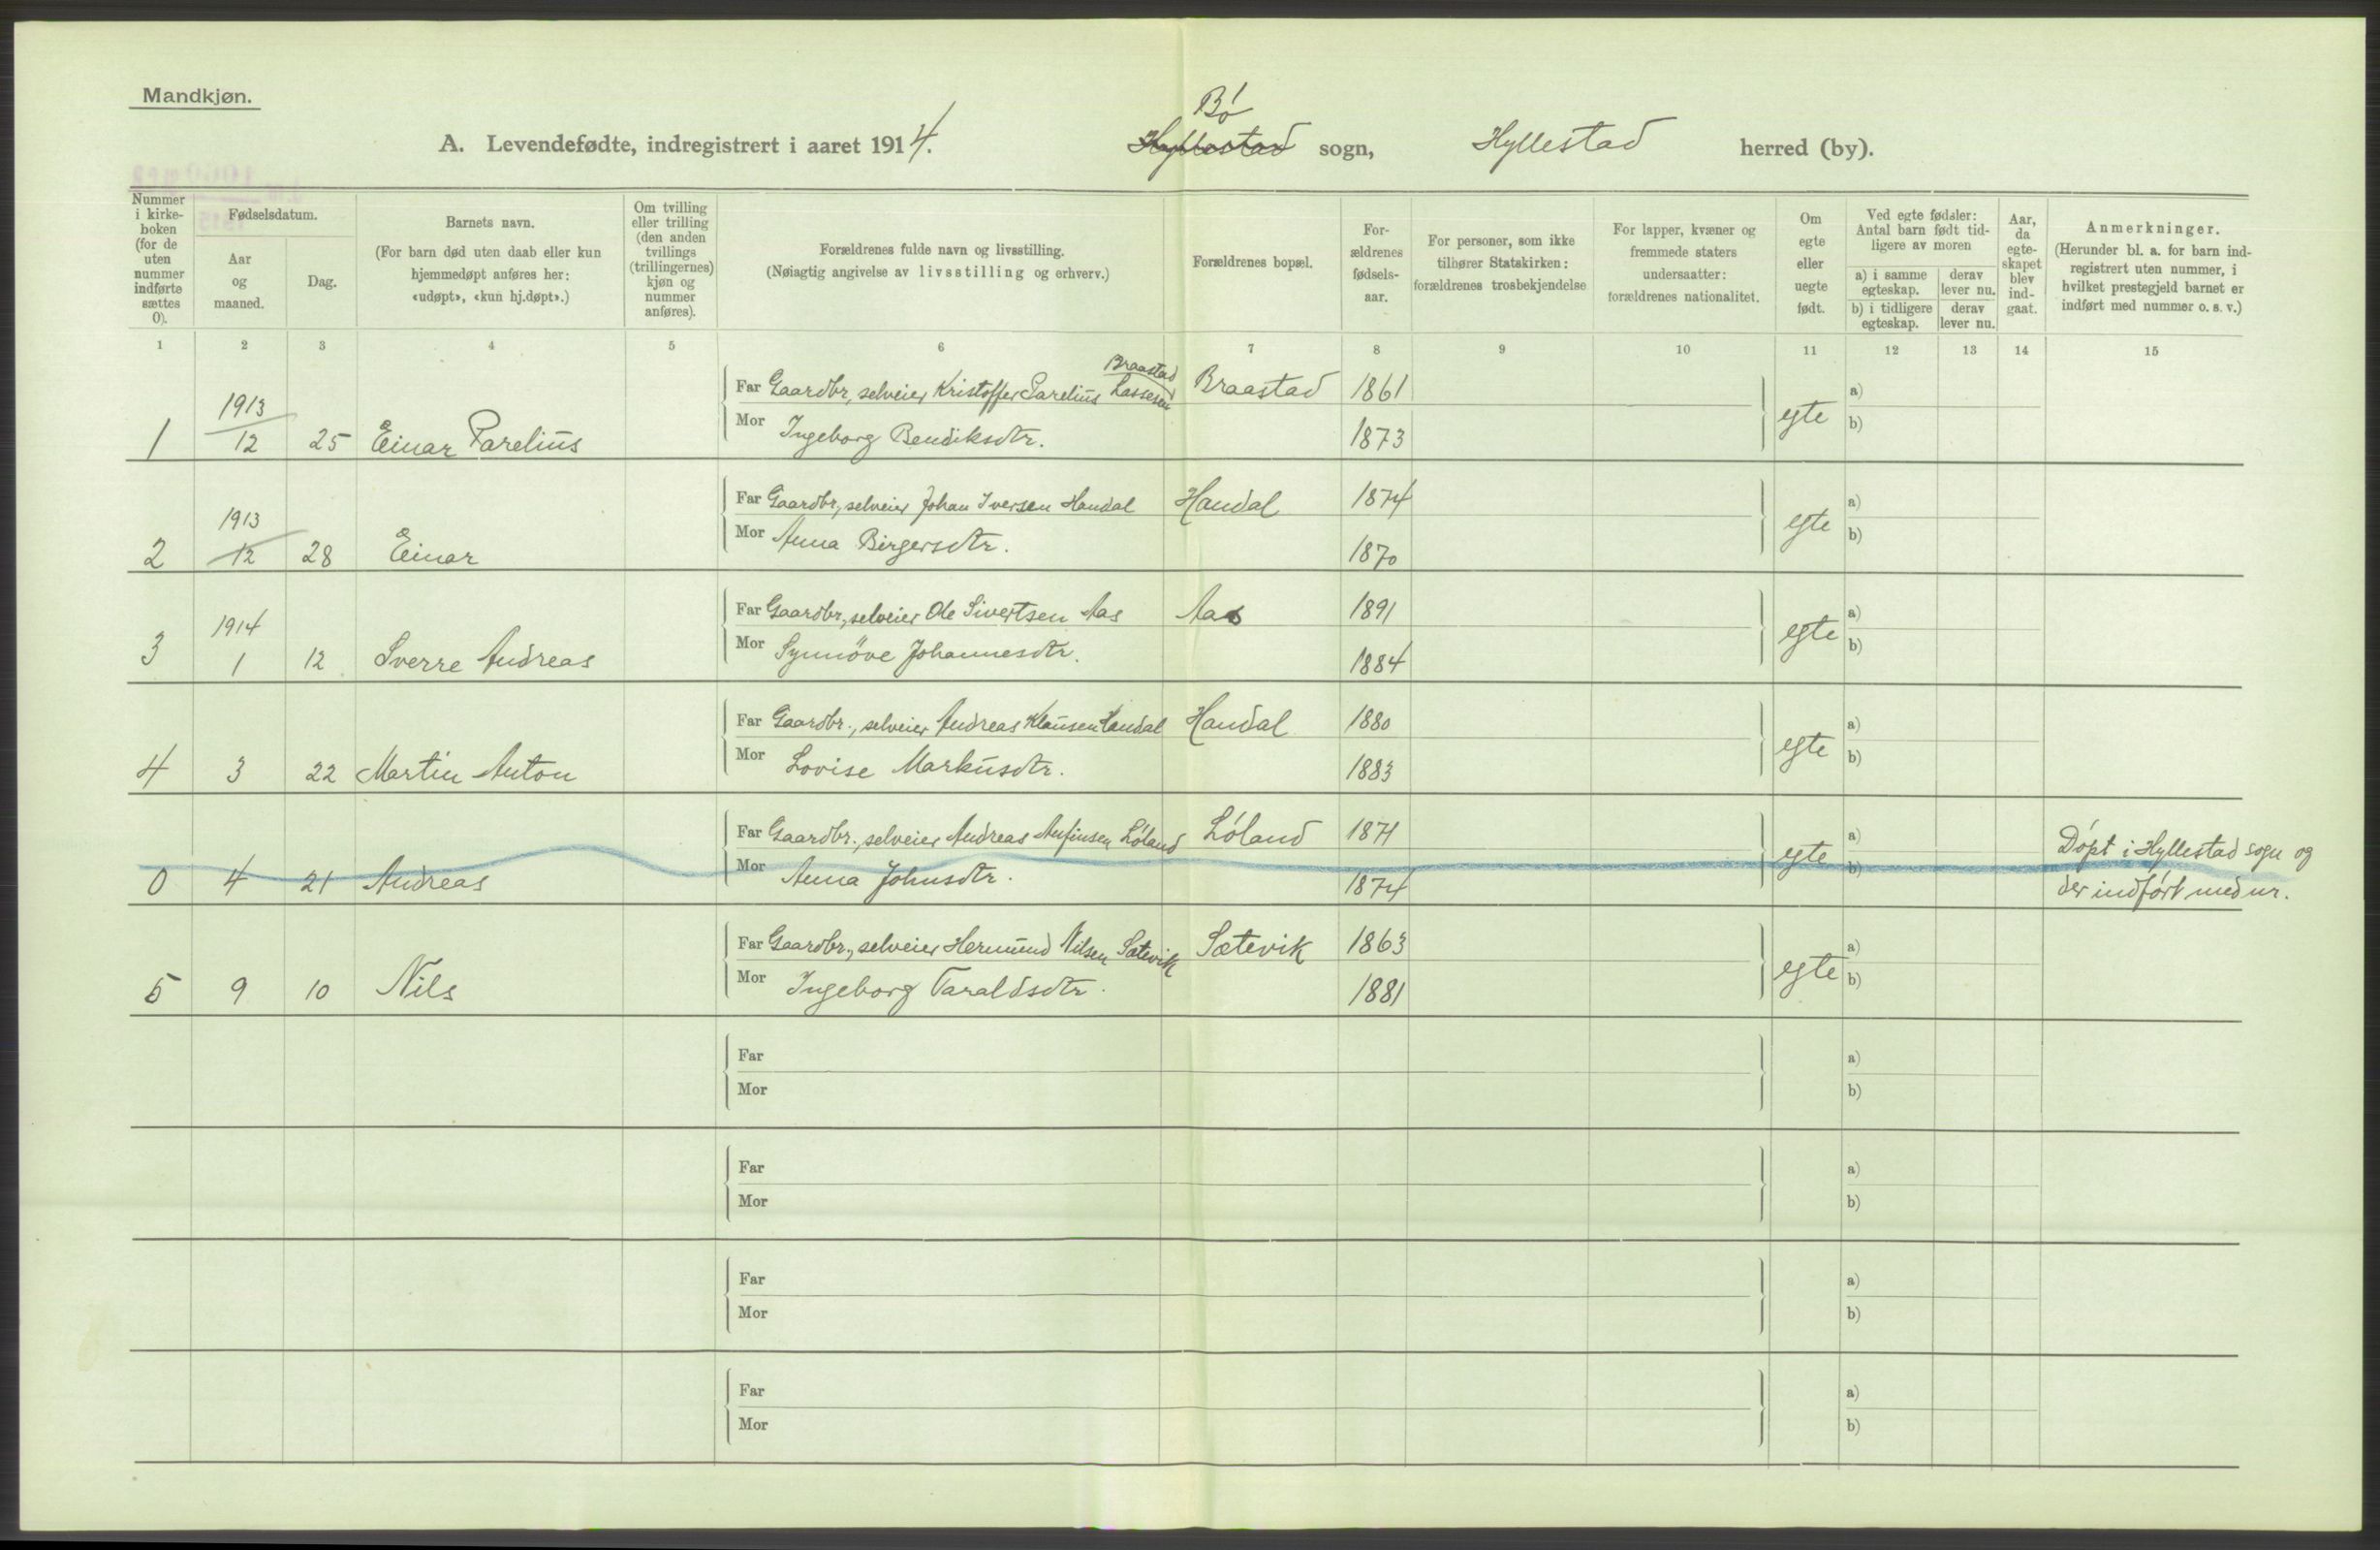 Mandkjøn.
A. Levendefødte, indregistrert i aaret 1914. Bø Hyllestad sogn, Hyllestad herred (by).
Nummer i kirkeboken (for de uten nummer indførte sættes 0).
Fødselsdatum.
Aar og maaned.
Dag.
Barnets navn.
(For barn død uten daab eller kun hjemmedøpt anføres her: «udøpt», «kun hj.døpt».)
Om tvilling eller trilling (den anden tvillings (trillingernes) kjøn og nummer anføres).
Forældrenes fulde navn og livsstilling.
(Nøiagtig angivelse av livsstilling og erhverv.)
Forældrenes bopæl.
Forældrenes fødselsaar.
For personer, som ikke tilhører Statskirken: forældrenes trosbekjendelse
For lapper, kvæner og fremmede staters undersaatter: forældrenes nationalitet.
Om egte eller uegte født.
Ved egte fødsler: Antal barn født tidligere av moren
a) i samme egteskap. derav lever nu.
b) i tidligere egteskap. derav lever nu.
Aar, da egteskapet blev indgaat.
Anmerkninger.
(Herunder bl. a. for barn indregistrert uten nummer, i hvilket prestegjeld barnet er indført med nummer o. s. v.)
1 2 3 4 5 6 7 8 9 10 11 12 13 14 15
Braastad
1913 Far Gaardbr, selveier Kristoffer Parelius Lassesen Braastad 1861 a)
1 12 25 Einar Parelius Mor Ingeborg Bendiksdtr. 1873 egte b)
1913 Far Gaardbr, selveier Johan Iversen Handal Handal 1874 a)
2 12 28 Einar Mor Anna Birgersdtr. 1870 egte b)
1914 Far Gaardbr, selveier Ole Sivertsen Aas Aas 1891 a)
3 1 12 Sverre Andreas Mor Synnöve Johannesdtr. 1884 egte b)
Far Gaardbr., selveier Andreas Klausen Handal Handal 1880 a)
4 3 22 Martin Anton Mor Lovise Markusdtr. 1883 egte b)
Far Gaardbr., selveier Andreas Anfinsen Löland Löland 1871 a) Döpt i Hyllestad sogn og
0 4 21 Andreas Mor Anna Johnsdtr. 1874 egte b) der indfört med nr.
Far Gaardbr., selveier Hermund Nilsen Sætevik Sætevik 1863 a)
5 9 10 Nils Mor Ingeborg Taraldsdtr. 1881 egte b)
Far a)
Mor b)
Far a)
Mor b)
Far a)
Mor b)
Far a)
Mor b)